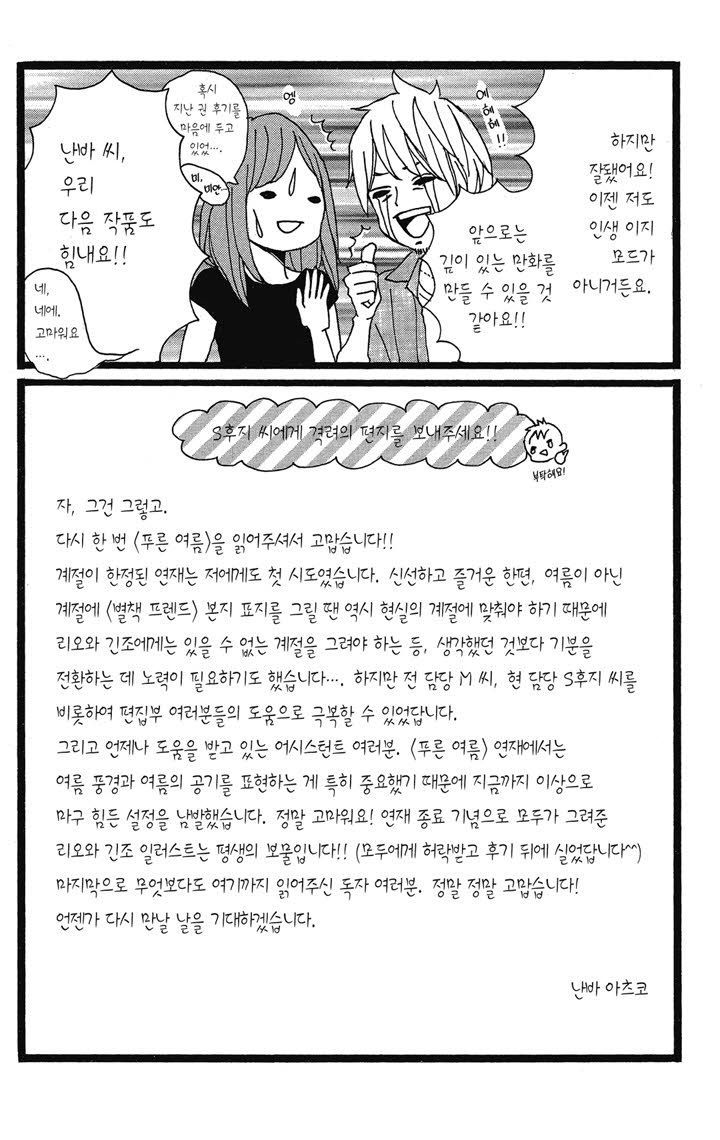 하지만
잘됐어요!
이젠 저도
인생 이지
모드가
아니거든요.
에헤헤!!
앞으로는
깊이 있는 만화를
만들 수 있을 것
같아요!!
엥
혹시
지난 권 후기를
마음에 두고
있었….
미,
미안.
난바 씨,
우리
다음 작품도
힘내요!!
네,
네에.
고마워요
….
S후지 씨에게 격려의 편지를 보내주세요!!
부탁해요!
자, 그건 그렇고.
다시 한 번 〈푸른 여름〉을 읽어주셔서 고맙습니다!!
계절이 한정된 연재는 저에게도 첫 시도였습니다. 신선하고 즐거운 한편, 여름이 아닌
계절에 〈별책 프렌드〉 본지 표지를 그릴 땐 역시 현실의 계절에 맞춰야 하기 때문에
리오와 긴조에게는 있을 수 없는 계절을 그려야 하는 등, 생각했던 것보다 기분을
전환하는 데 노력이 필요하기도 했습니다…. 하지만 전 담당 M 씨, 현 담당 S후지 씨를
비롯하여 편집부 여러분들의 도움으로 극복할 수 있었답니다.
그리고 언제나 도움을 받고 있는 어시스턴트 여러분. 〈푸른 여름〉 연재에서는
여름 풍경과 여름의 공기를 표현하는 게 특히 중요했기 때문에 지금까지 이상으로
마구 힘든 설정을 남발했습니다. 정말 고마워요! 연재 종료 기념으로 모두가 그려준
리오와 긴조 일러스트는 평생의 보물입니다!! (모두에게 허락받고 후기 뒤에 실었답니다^^)
마지막으로 무엇보다도 여기까지 읽어주신 독자 여러분. 정말 정말 고맙습니다!
언젠가 다시 만날 날을 기대하겠습니다.
난바 아츠코